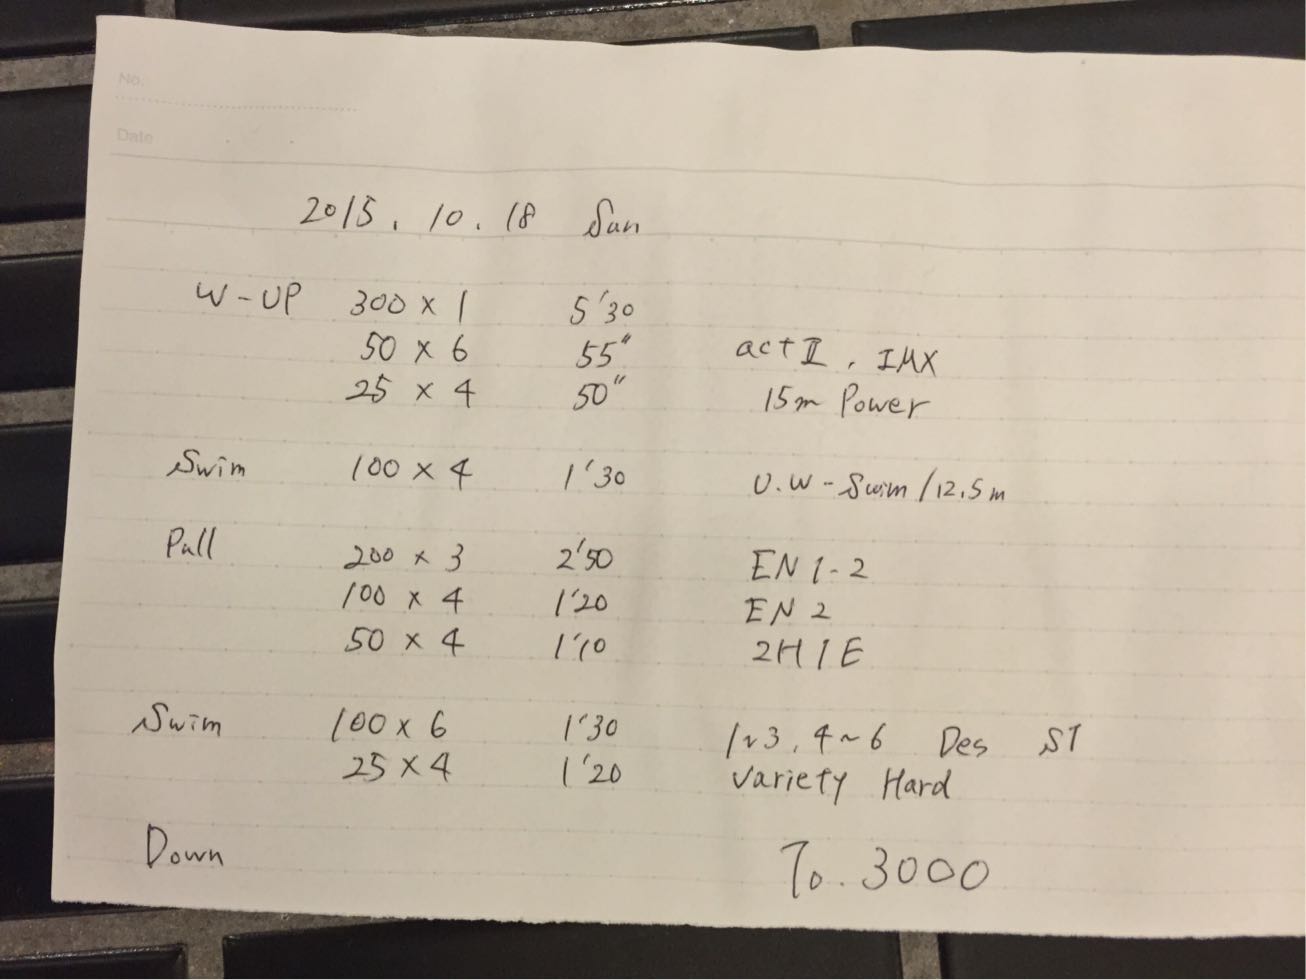 No.
Date
2015. 10. 18 Sun
W-UP 300 × 1 5'30
50 × 6 55" act II, IMX
25 × 4 50" 15m Power
Swim 100 × 4 1'30 U.W-Swim/12.5m
Pull 200 × 3 2'50 EN1-2
100 × 4 1'20 EN2
50 × 4 1'10 2H1E
Swim 100 × 6 1'30 1~3, 4~6 Des S1
25 × 4 1'20 Variety Hard
Down To. 3000